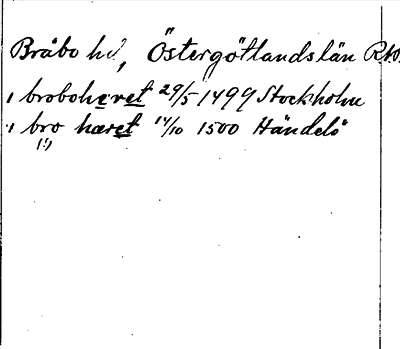 Bråbo hd, Östergötlands län RAp.
i broboheret 29/5 1499 Stockholm
i bro hæret 14/10 1500 Händelö
(!)